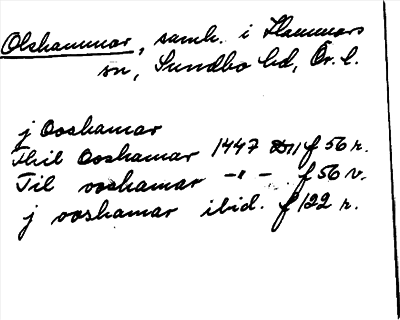 Olshammar, samh. i Hammars
sn, Sundbo hd, Ör. l.
j Ooshamar
Thil Ooshamar 1447 D11 f 56 r.
Til voshamar –"– f 56 v.
j voshamar ibid. f 122 r.